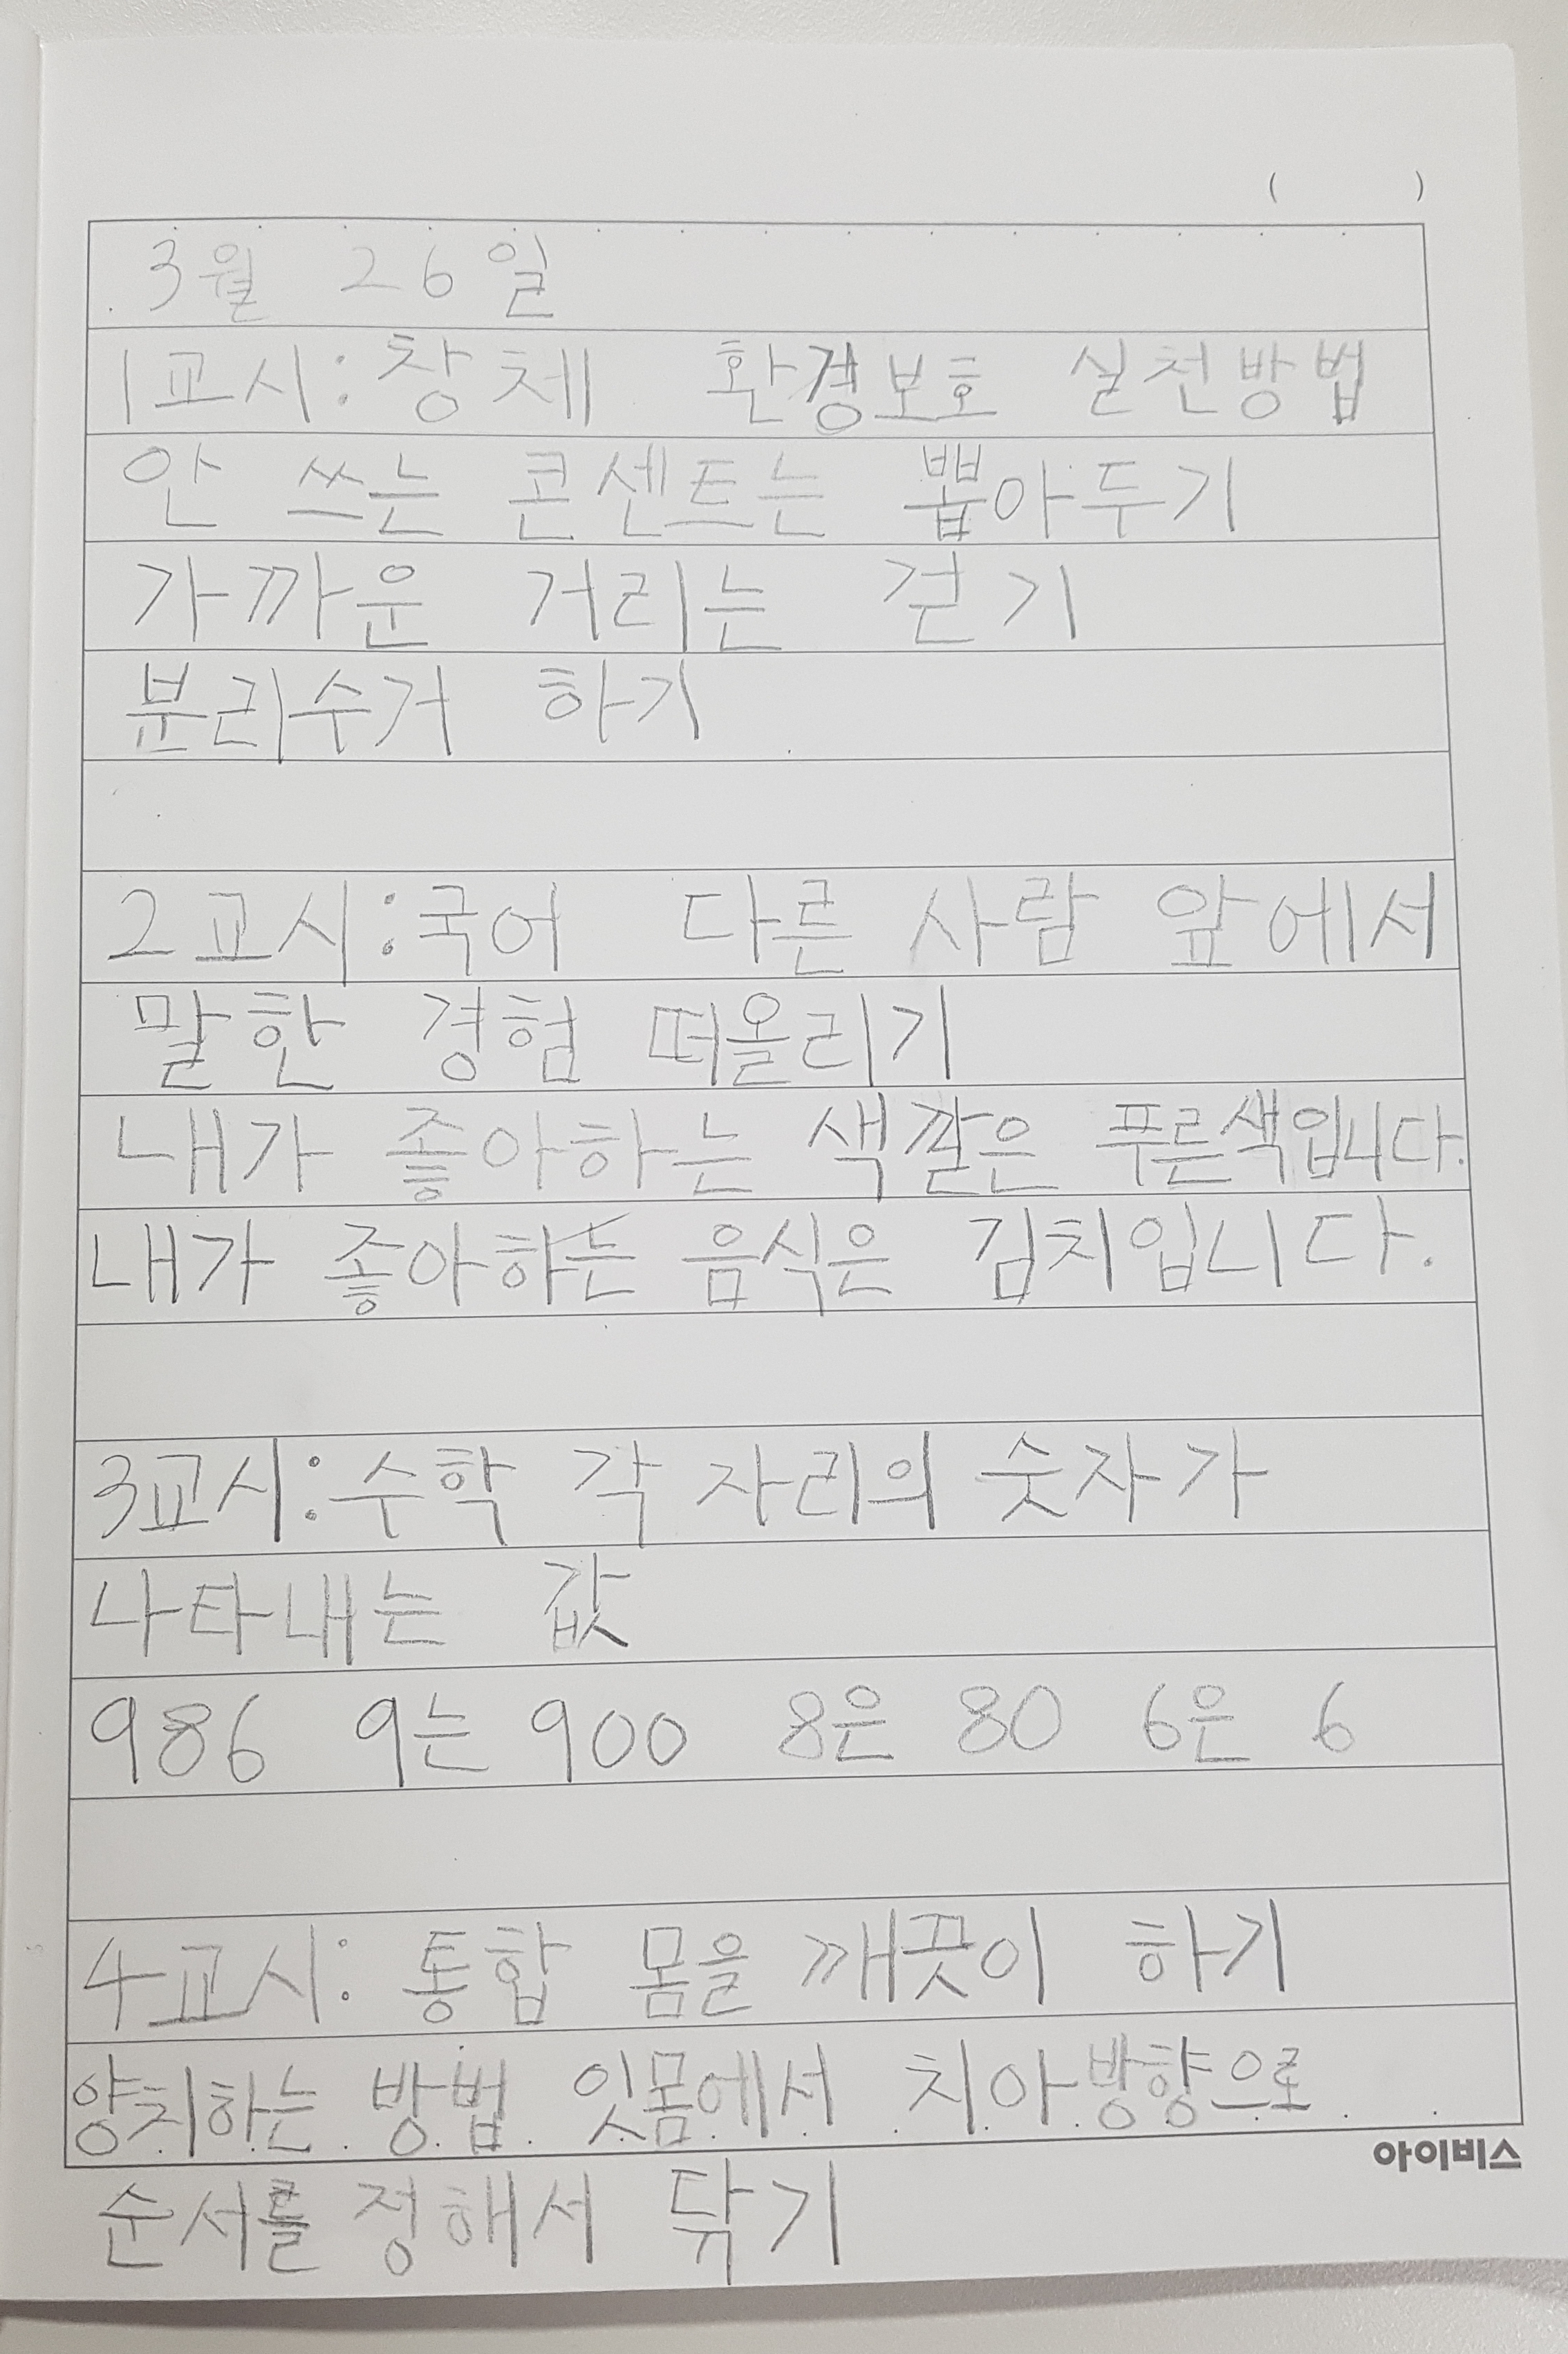 (      )
3월 26일
1교시:창체 환경보호 실천방법
안 쓰는 콘센트는 뽑아두기
가까운 거리는 걷기
분리수거 하기
2교시:국어 다른 사람 앞에서
말한 경험 떠올리기
내가 좋아하는 색깔은 푸른색입니다.
내가 좋아하는 음식은 김치입니다.
3교시:수학 각 자리의 숫자가
나타내는 값
986 9는 900 8은 80 6은 6
4교시: 통합 몸을 깨끗이 하기
양치하는 방법 잇몸에서 치아방향으로
아이비스
순서를 정해서 닦기